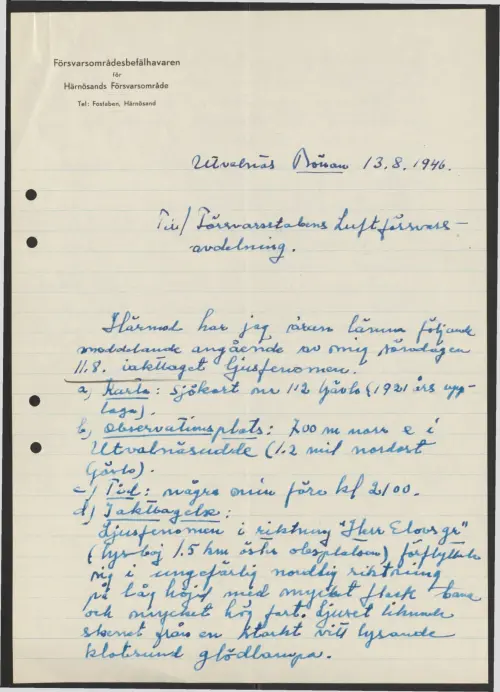 Försvarsområdesbefälhavaren
för
Härnösands Försvarsområde
Tel: Fostaben, Härnösand
Utvalnäs Bönan 13.8.1946.
Till/ Försvarsstabens Luftförsvars-
avdelning.
Härmed har jag äran lämna följande
meddelande angående av mig söndagen
11.8. iakttaget ljusfenomen.
a) Karta: Sjökort nr 112 Gävle (1921 års upp-
laga).
b) Observationsplats: 700 m norr e i
Utvalnäsudde (1.2 mil nordost
Gävle).
c) Tid: några min före kl 2100.
d) Iakttagelse:
Ljusfenomen i riktning "Herr Elovs gr"
(lys-boj 1.5 km öster obsplatsen) förflyttade
sig i ungefärlig nordlig riktning
på låg höjd med mycket flack bana
och mycket hög fart. Ljuset liknade
skenet från en starkt vitt lysande
klotrund glödlampa.